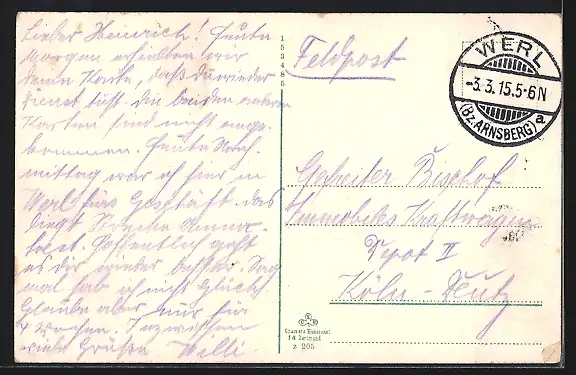 Lieber Heinrich! Heute
Morgen erhielten wir
deine Karte, daß du wieder
Dienst tust. Die beiden anderen
Karten sind nicht ange-
kommen. Heute Nach-
mittag war ich hier in
Werl fürs Geschäft. das
liegt Strecke
Hoffentlich geht
es dir wieder besser.
mal hab ich nicht Glück
Glaube aber nur für
4 Wochen. Inzwischen
viele Grüße Willi.
153485
Feldpost
WERL
-3.3.15.5-6N
(Bz. ARNSBERG) a
Gefreiter Bischof
Immobiles Kraftwagen
Depot II
Köln-Deutz
Cramers Kunstanst.
Dortmund
z 205